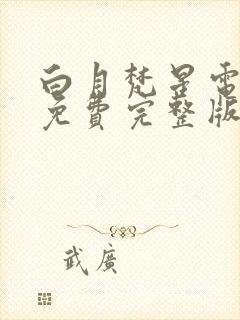 白月梵星電
免費完整版
武廣